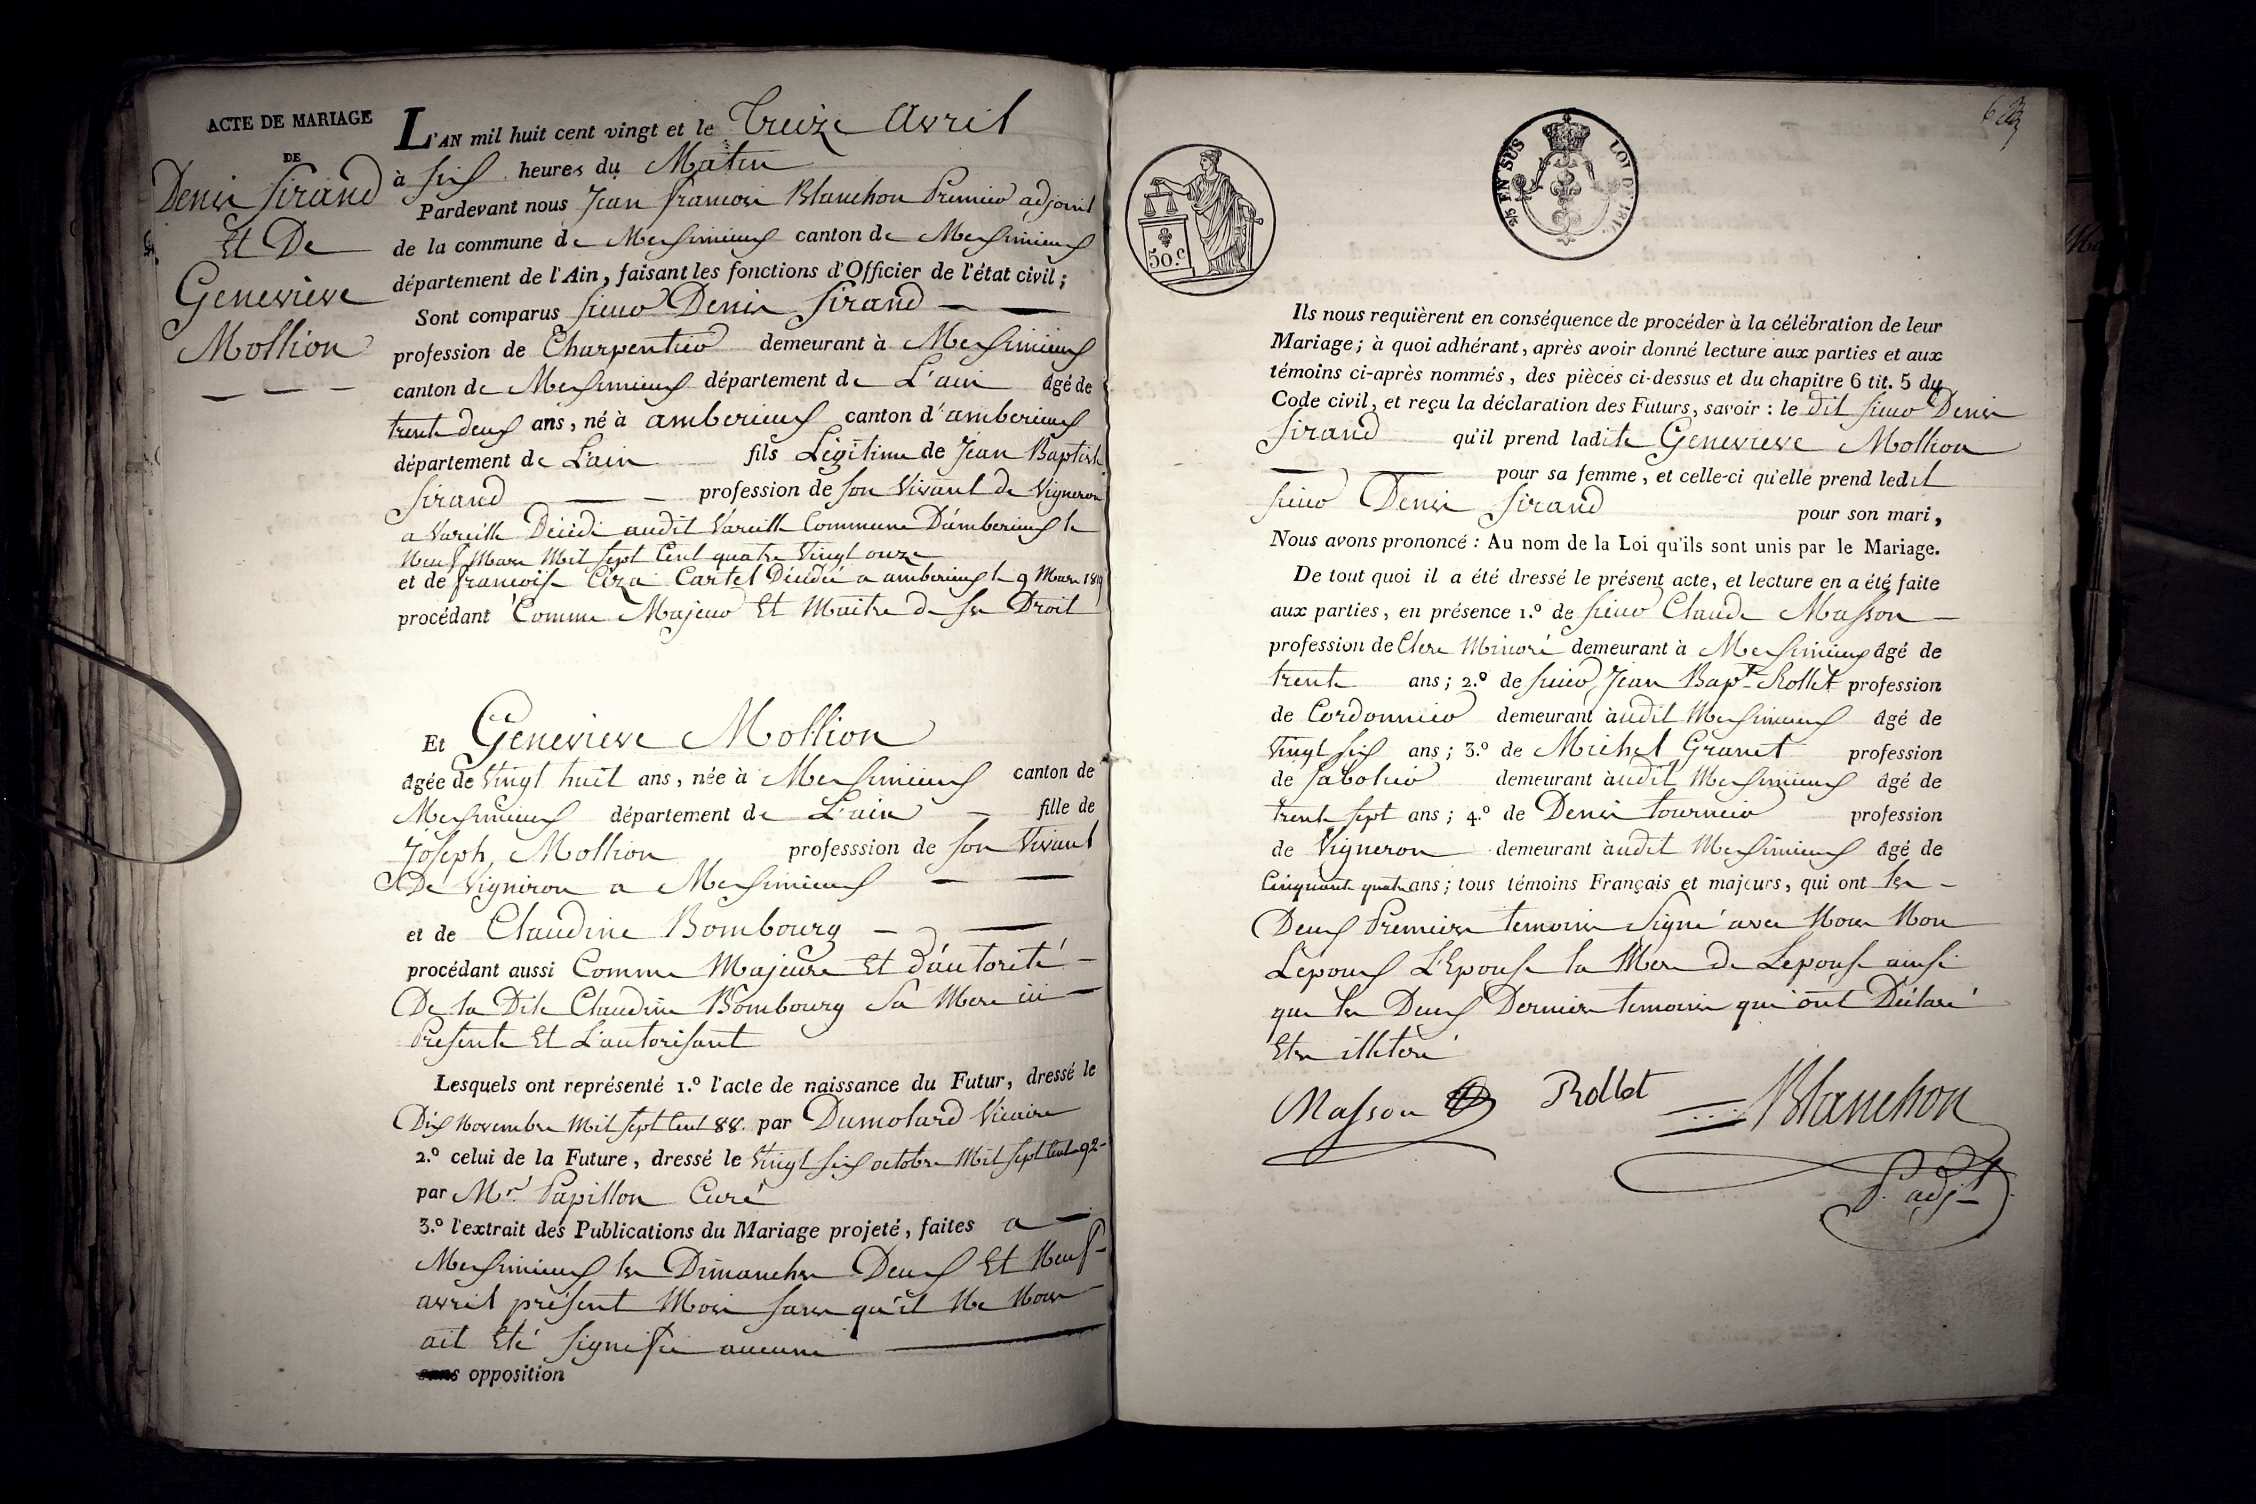 ACTE DE MARIAGE
DE
Denis Sirand
Et De
Genevieve
Mollion
L'AN mil huit cent vingt et le Treize Avril
à six heures du Matin
Pardevant nous Jean françois Blanchon Premier adjoint
de la commune de Messimieux canton de Messimieux
département de l'Ain, faisant les fonctions d'Officier de l'état civil;
Sont comparus sieur Denis Sirand
profession de Charpentier demeurant à Messimieux
canton de Messimieux département de L'ain âgé de
trente deux ans, né à amberieux canton d'amberieux
département de L'ain fils Légitime de Jean Baptiste
Sirand profession de son Vivant de Vigneron
a Vareille Décédé audit Vareille Commune D'amberieux le
Neuf Mars Mil sept Cent quatre Vingt onze
et de francoise Cartel Décédée a amberieux le 9 Mars 1819
procédant Comme Majeur Et Maitre de ses Droit
Et Genevieve Mollion
âgée de Vingt huit ans, née à Messimieux canton de
Messimieux département de L'ain fille de
Joseph Mollion professsion de son Vivant
De Vigniron a Messimieux
et de Claudine Bombourg
procédant aussi Comme Majeure Et d'autorité
De la Dite Claudine Bombourg Sa Mere ici
Presente Et L'autorisant
Lesquels ont représenté 1.º l'acte de naissance du Futur, dressé le
Dix Novembre Mil sept Cent 88. par Dumolard Vicaire
2.º celui de la Future, dressé le Vingt six octobre Mil sept Cent 92
par Mr. Papillon Curé
3.º l'extrait des Publications du Mariage projeté, faites a
Messimieux les Dimanches Deux Et Neuf
avril présent Mois sans qu'il Ne Nous
ait Eté signifié aucune
sans opposition
50.c
2/5 EN SUS
LOI DE 181
Ils nous requièrent en conséquence de procéder à la célébration de leur
Mariage; à quoi adhérant, après avoir donné lecture aux parties et aux
témoins ci-après nommés, des pièces ci-dessus et du chapitre 6 tit. 5 du
Code civil, et reçu la déclaration des Futurs, savoir : le dit sieur Denis
Sirand qu'il prend ladite Genevieve Mollion
pour sa femme, et celle-ci qu'elle prend ledit
sieur Denis Sirand pour son mari,
Nous avons prononcé : Au nom de la Loi qu'ils sont unis par le Mariage.
De tout quoi il a été dressé le présent acte, et lecture en a été faite
aux parties, en présence 1.º de sieur Claude Masson
profession de Clerc Minoré demeurant à Messimieux âgé de
trente ans; 2.º de sieur Jean Bapte Rollet profession
de Cordonnier demeurant audit Messimieux âgé de
Vingt six ans; 3.º de Michel Granet profession
de sabotier demeurant audit Messimieux âgé de
trente sept ans; 4.º de Denis tournier profession
de Vigneron demeurant audit Messimieux âgé de
Cinquante quatre ans; tous témoins Français et majeurs, qui ont les
Deux Premiers temoins signé avec Nous Non
L'epoux L'Epouse la Mere de L'epouse ainsi
que les Deux Derniers temoins qui ont Déclaré
Etre illeteré
Masson Rollet Blanchon
P. adjt